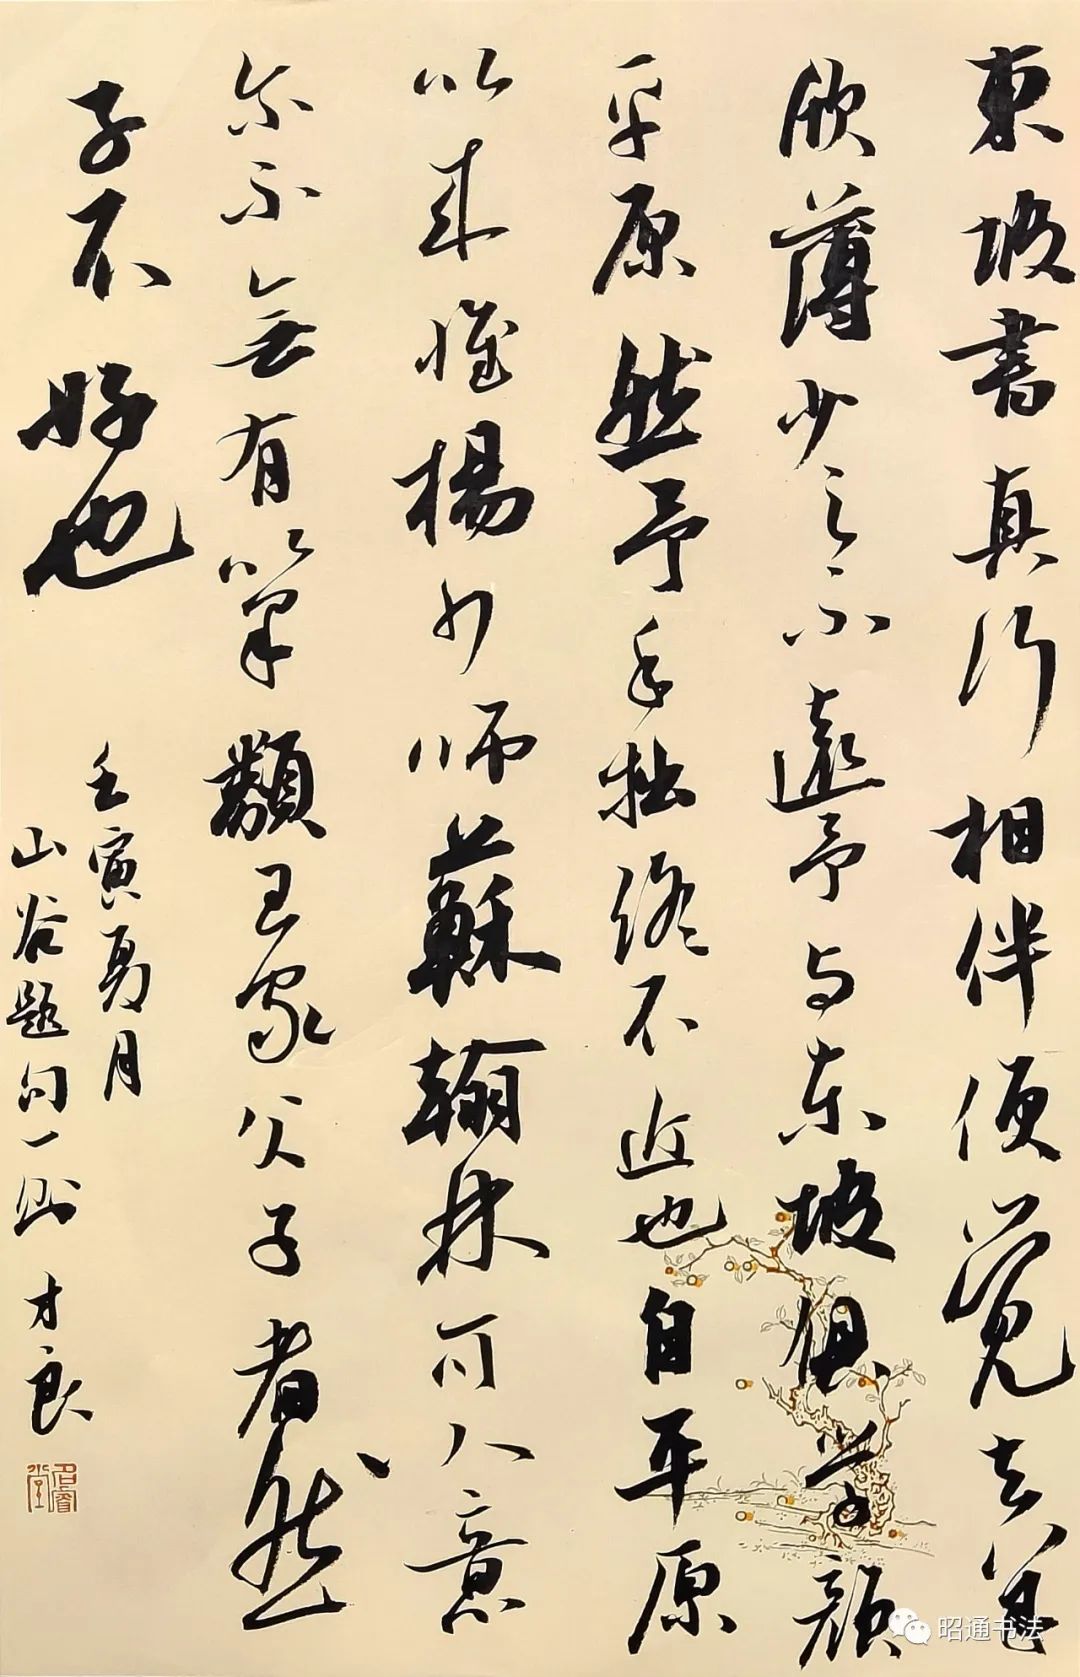 東坡書真行相伴便覺去
欣薄少之不遠予与東坡俱学顔
平原然予手拙終不近也自平原
以来惟楊少師蘇翰林可人意
尔不無有筆類王家父子者然
子不好也
壬寅夏月
山谷題句一則 才良
昭通书法